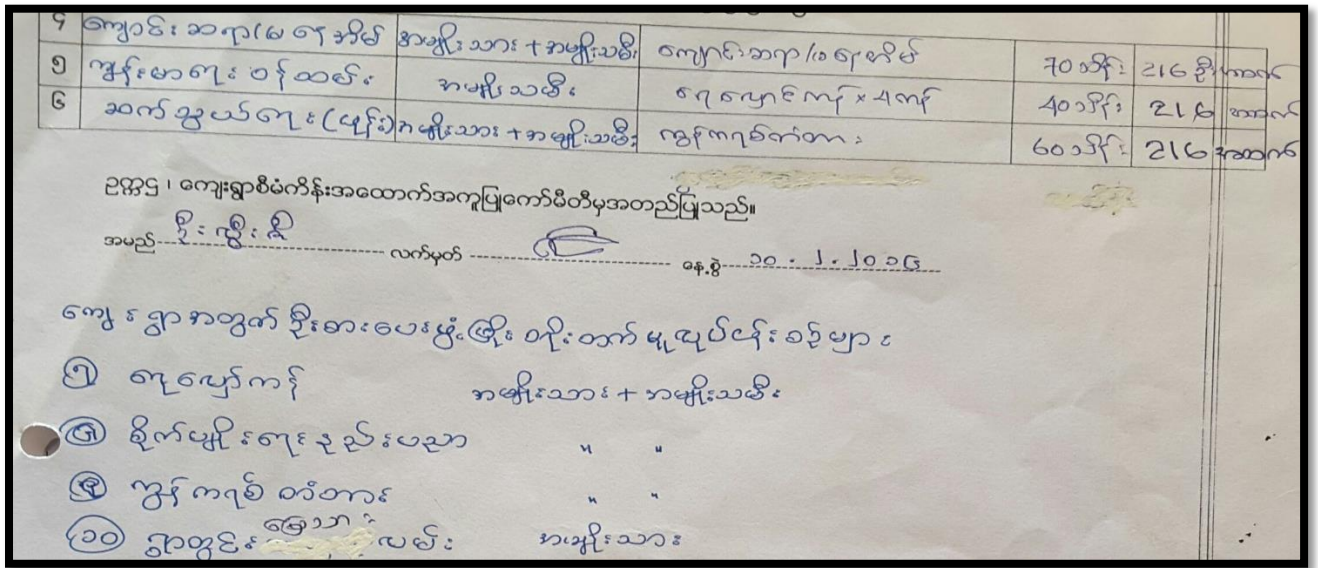 ၄ ကျောင်းဆရာ/မ နေအိမ် အမျိုးသား + အမျိုးသမီး ကျောင်းဆရာ/မ နေအိမ် 70 သိန်း 216 ဦး အထက်
၅ ကျန်းမာရေး ဝန်ထမ်း အမျိုးသမီး ရေလှောင်ကန် × 4 ကန် 40 သိန်း 216 အထက်
၆ ဆက်သွယ်ရေး (ဖုန်း) အမျိုးသား + အမျိုးသမီး ကွန်ကရစ်တံတား 60 သိန်း 216 အထက်
ဥက္ကဋ္ဌ၊ ကျေးရွာစီမံကိန်းအထောက်အကူပြုကော်မီတီမှအတည်ပြုသည်။
အမည် ဦး လက်မှတ် နေ့စွဲ ၁၀.၂.၂၀၁၆
ကျေးရွာအတွက် ဦးစားပေးဖွံ့ဖြိုးတိုးတက်မှုလုပ်ငန်းစဉ်များ
၇ ရေလှော်ကန် အမျိုးသား + အမျိုးသမီး
၈ စိုက်ပျိုးရေးနည်းပညာ " "
၉ ကွန်ကရစ် တံတား " "
၁၀ ရွာတွင်း မြေသား လမ်း အမျိုးသား